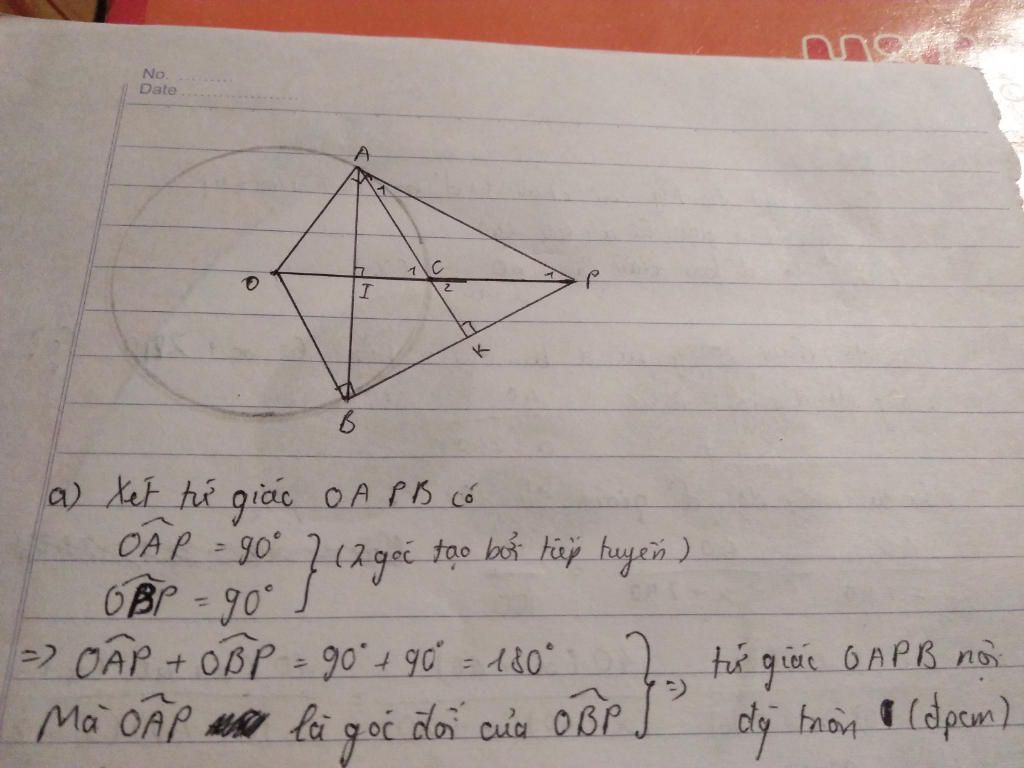 No. ..........
Date .....................
A
1
O
I
1
C
2
1
P
K
B
a) Xét tứ giác OAPB có
OÂP = 90°
OB̂P = 90°
(2 góc tạo bởi tiếp tuyến)
=> OÂP + OB̂P = 90° + 90° = 180°
Mà OÂP là góc đối của OB̂P
=> tứ giác OAPB nội
đg tròn (đpcm)